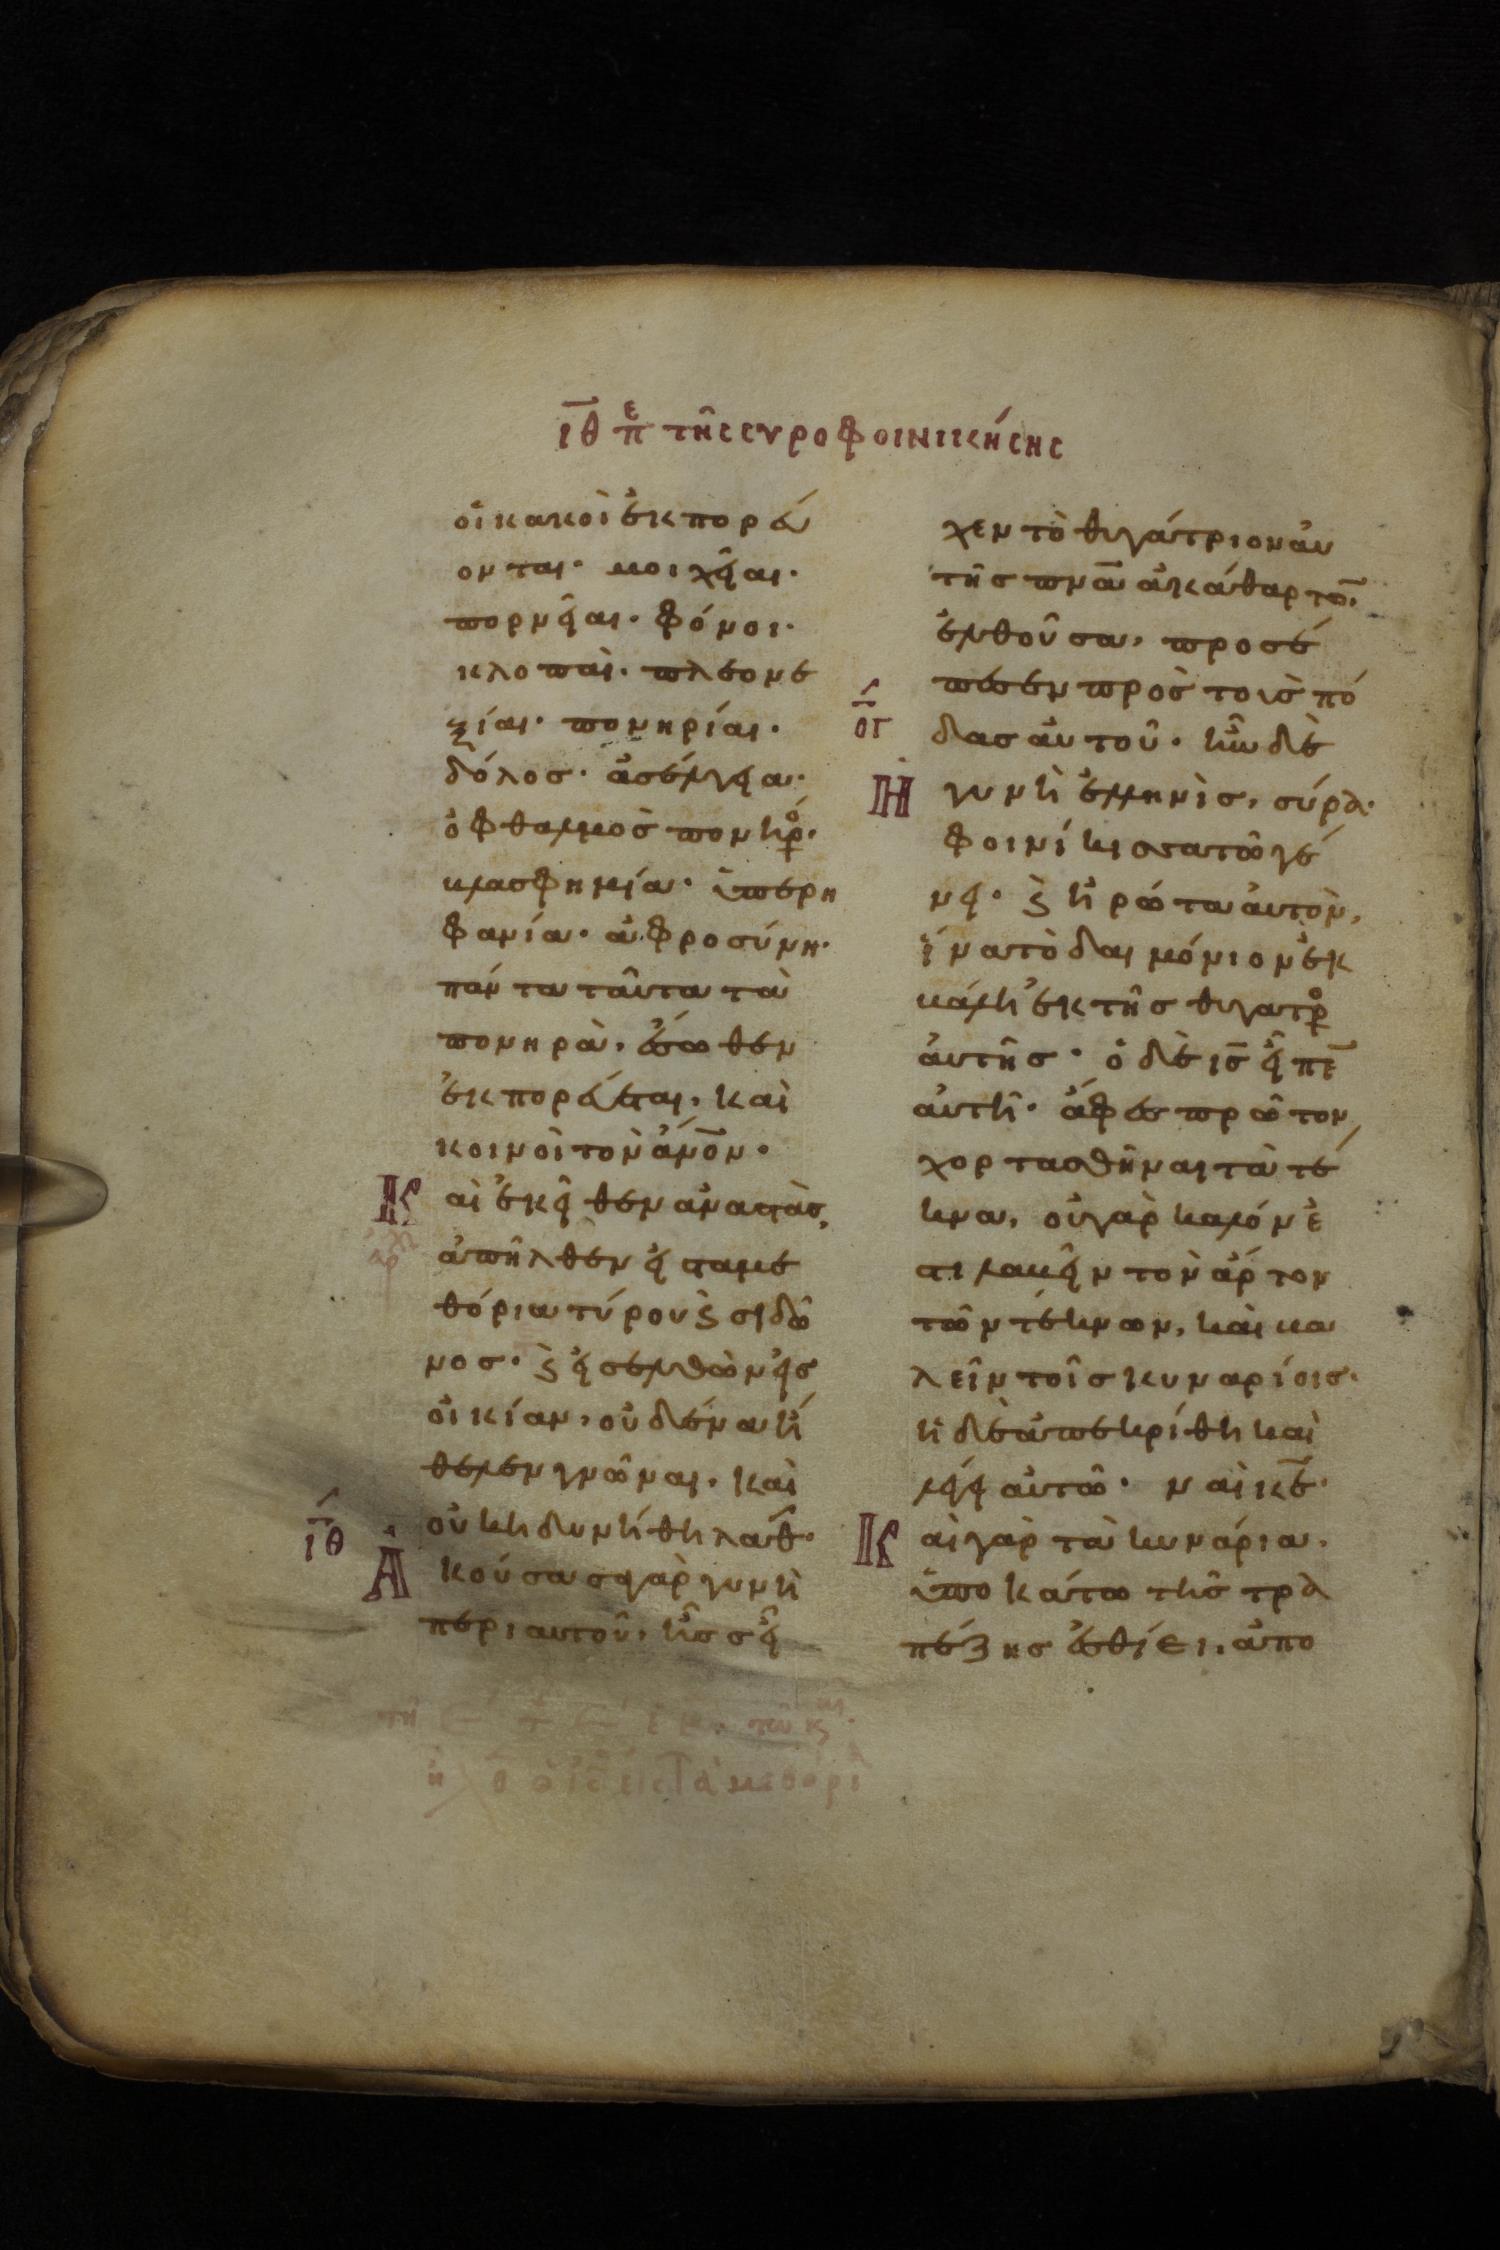 ιθ πε τῆς συροφοινικήσης
οἱ κακοὶ ἐκπορεύ
ονται· μοιχεῖαι·
πορνεῖαι· φόνοι·
κλοπαὶ· πλεονε
ξίαι· πονηρίαι·
δόλος· ἀσέλγεια·
ὀφθαλμὸς πονηρό·
βλασφημία· ὑπερη
φανία· ἀφροσύνη·
πάντα ταῦτα τὰ
πονηρὰ, ἔσωθεν
ἐκπορεύεται, καὶ
κοινοῖ τὸν ἄνον·
Καὶ ἐκεῖθεν ἀναστὰς,
ἀπῆλθεν εἰς τὰ με
θόρια τύρου ϗ σιδῶ
νος· ϗ εἰσελθὼν εἰς
οἰκίαν, οὐδένα ἤ
θελεν γνῶναι, καὶ
οὐκ ἠδυνήθη λαθεῖ·
ιθ
Ἀκούσασα γὰρ γυνὴ
περι αυτοῦ, ἧς εἶ
χεν τὸ θυγάτριον αὐ
τῆς πνα ἀκάθαρτο,
ἐλθοῦσα, προσέ
πεσεν πρὸς τοὺς πό
ος
δας αὐτοῦ· ἦν δὲ
Ἡ γυνὴ ἑλληνὶς, σύρα·
φοινίκισσα τῶ γέ
νει· ϗ ἠρώτα αὐτὸν,
ἵνα τὸ δαιμόνιον ἐκ
βάλη ἐκ τῆς θυγατρο
αὐτῆς· ὁ δὲ ις εἶπε
αὐτῆ· ἄφες πρῶτον
χορτασθῆναι τὰ τέ
κνα, οὐ γὰρ καλόν ἐ
στι λαβεῖν τὸν ἄρτον
τῶν τέκνων, καὶ βα
λεῖν τοῖς κυναρίοις·
ἡ δὲ ἀπεκρίθη καὶ
λέγει αὐτῶ· ναὶ κε·
Καὶ γὰρ τὰ κυνάρια,
ὑποκάτω τῆς τρα
πέζης ἐσθίει, ἀπο